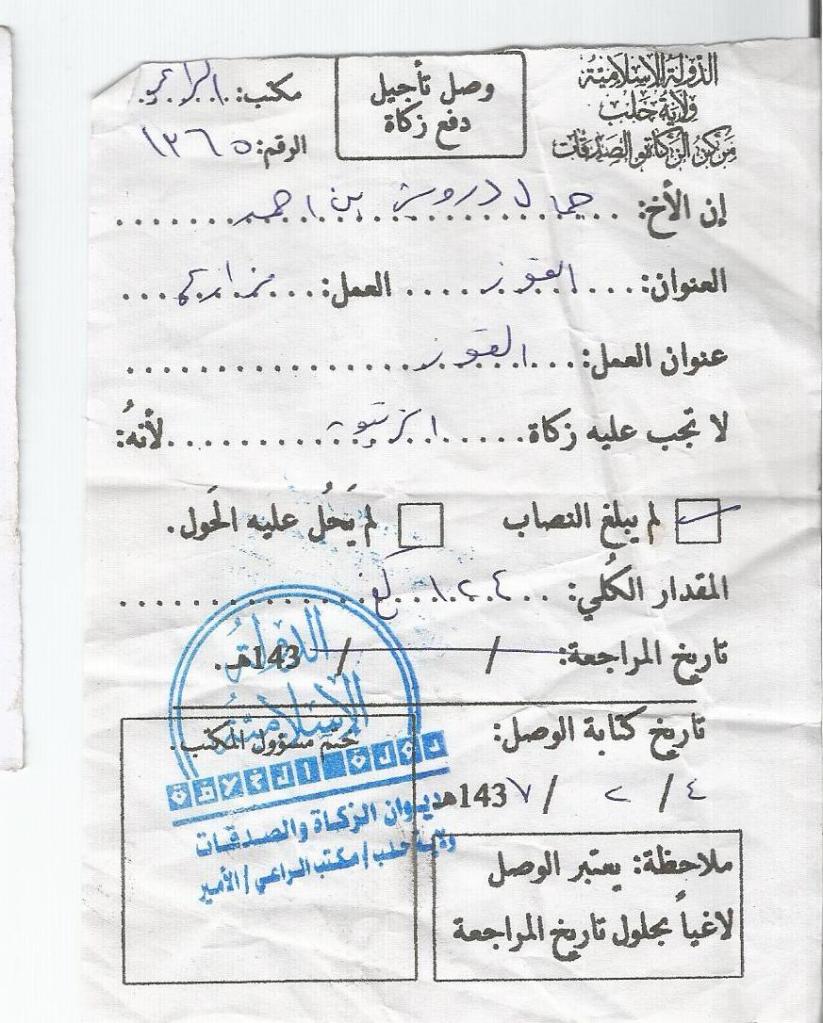 الدولة الإسلامية
ولاية حلب
مركز الزكاة والصدقات
وصل تأجيل
دفع زكاة
مكتب: الراعي
الرقم: ١٣٦٥
إن الأخ: جمال درويش بن احمد
العنوان: القوز العمل: مزارع
عنوان العمل: القوز
لا تجب عليه زكاة لأنهُ:
لم يبلغ النصاب
لم يَحُل عليه الحَول.
المقدار الكُلي: ١٠٢٤ كغ
تاريخ المراجعة: / / 143هـ.
تاريخ كتابة الوصل:
٤ / ٢ / 143٧هـ
ختم مسؤول المكتب.
الدولة
الإسلامية
ديوان الزكاة والصدقات
ولاية حلب / مكتب الراعي / الأمير
ملاحظة: يعتبر الوصل
لاغياً بحلول تاريخ المراجعة